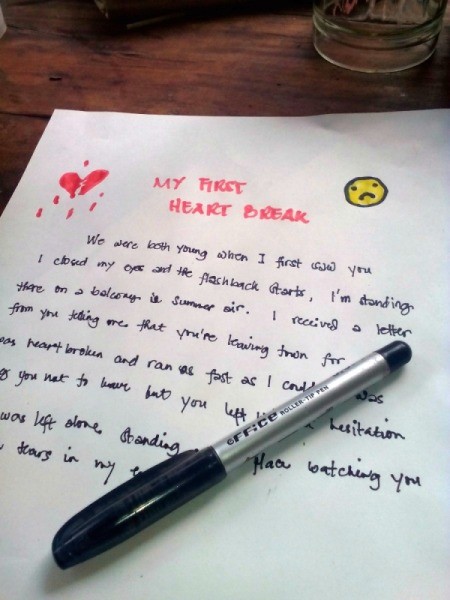 MY FIRST
HEART BREAK
We were both young when I first saw you
I closed my eyes and the flashback starts, I'm standing
there on a balcony in summer air. I received a letter
from you telling me that you're leaving town for
heartbroken and ran as fast as I was
you not to leave but you left hesitation
was left alone, standing
tears in my watching you
OFFICE ROLLER-TIP PEN